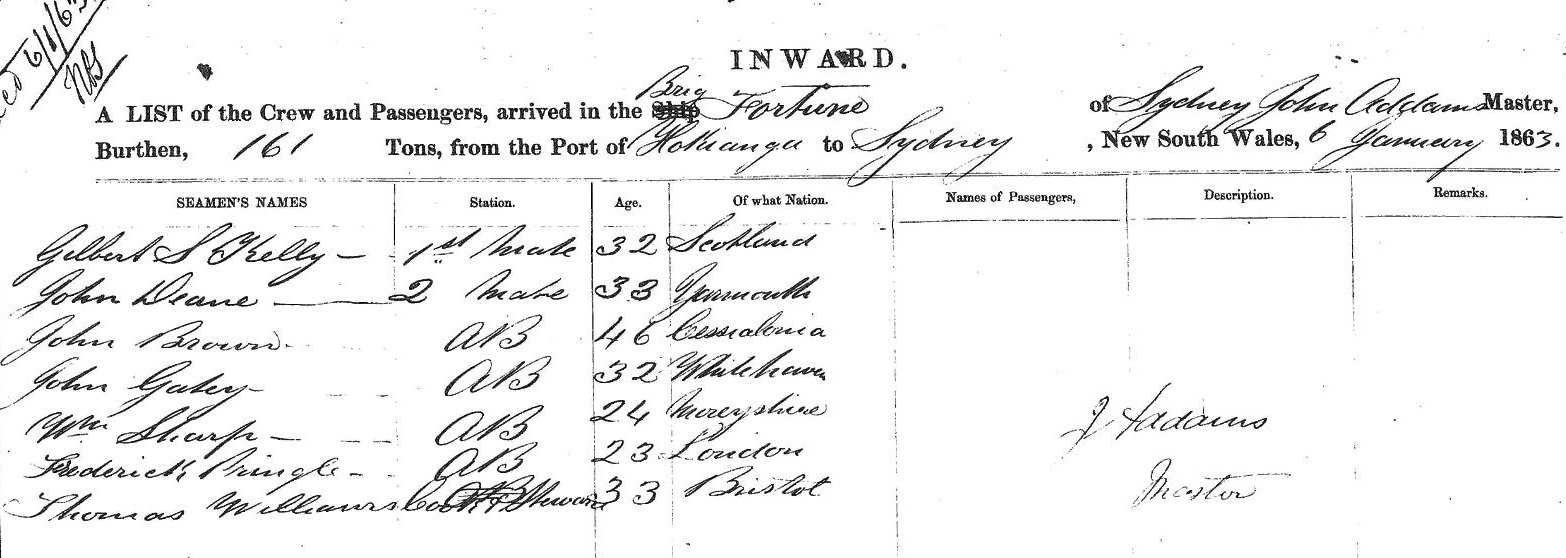 6/1/63
INWARD.
Brig
A LIST of the Crew and Passengers, arrived in the Ship Fortune of Sydney John Addams Master,
Burthen, 161 Tons, from the Port of Hokianga to Sydney , New South Wales, 6 January 1863.
SEAMEN'S NAMES Station. Age. Of what Nation. Names of Passengers, Description. Remarks.
Gilbert S Kelly 1st Mate 32 Scotland
John Deane 2 Mate 33 Yarmouth
John Brown AB 46
John Gatey AB 32 Whitehaven
Wm Sharp AB 24 Moreyshire
Frederick Pringle AB 23 London
Thomas Williams Cook & Steward 33 Bristol
J Addams
Master